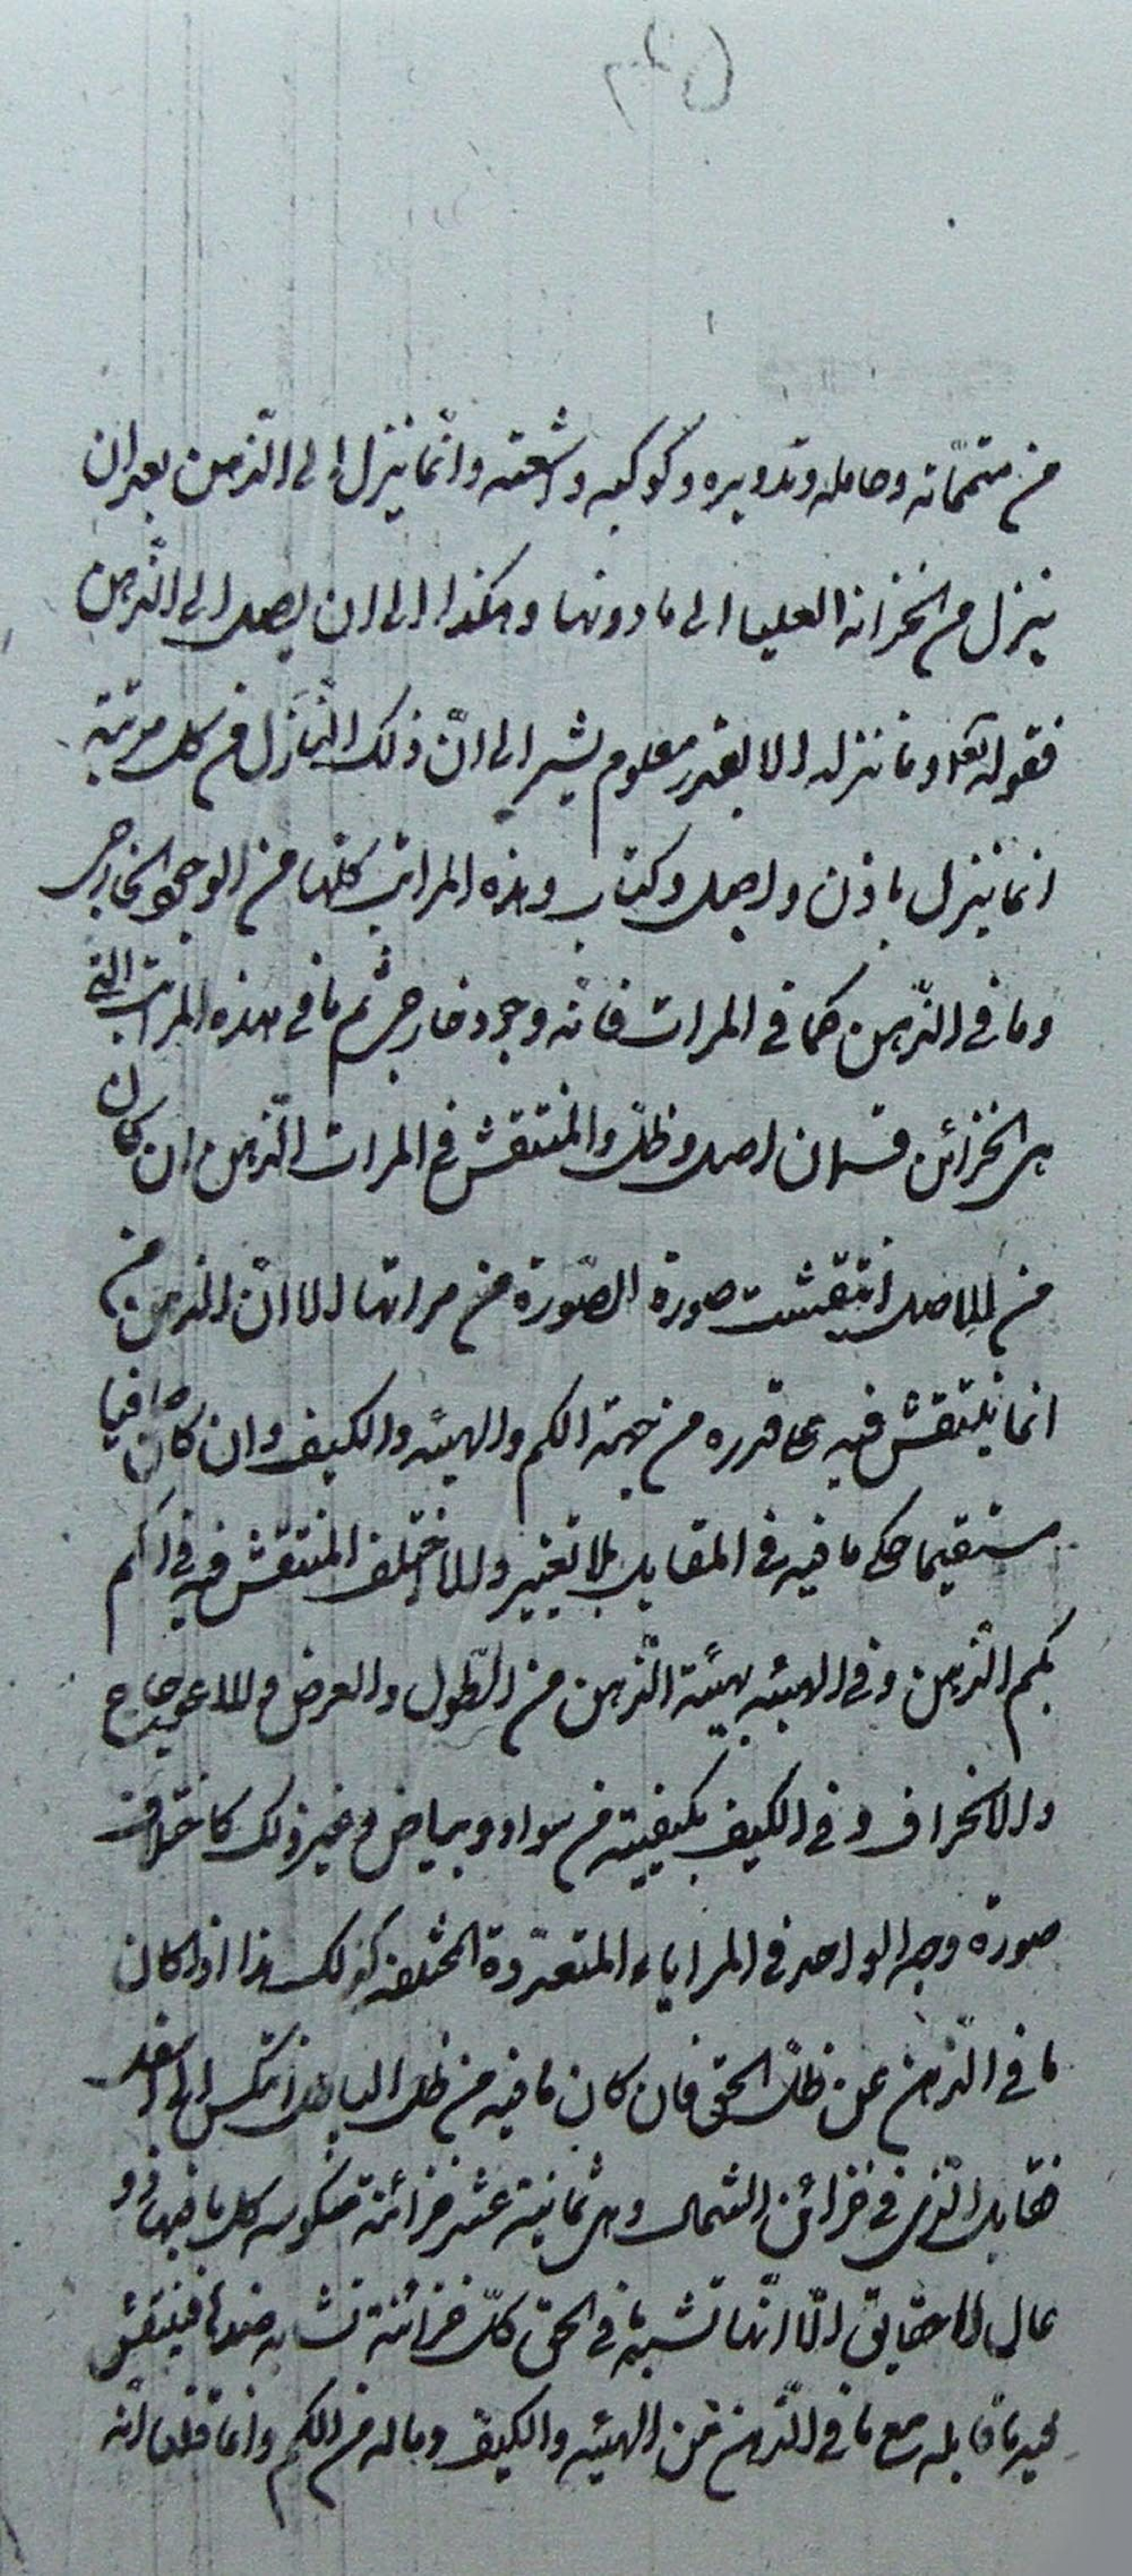 من متمماته وحامله وتدويره وكوكبه واشعته وانّما ينزل الى الذّهن بعد ان
ينزل من الخزانة العليا الى ما دونها وهكذا الى ان يصل الى الذّهن
فقوله تعالى وما ننزله الا بقدر معلوم يشير الى انّ ذلك النّازل فى كل مرتبة
انما ينزل باذن واجل وكتاب وهذه المراتب كلها من الوجود الخارجى
وما فى الذّهن كما فى المرات فانّه وجود خارجى ثم ما فى هذه المراتب التى
هى الخزائن قسمان اصل وظلّ والمنتقش فى المرات الذّهن ان كان
من الاصل انتقشت صورة الصّورة من مراتها الا انّ الذهن
انما ينتقش فيه على قدره من جهة الكم والهيئه والكيف وان كان صافيا
مستقيما حكى ما فيه فى المقابل بلا تغيير والا اختلف المنتقش فيه فى الكم
بكم الذّهن وفى الهيئه بهيئة الذّهن من الطّول والعرض والاعوجاج
والانحراف وفى الكيف بكيفيته من سواد وبياض وغير ذلك كاختلاف
صورة وجه الواحد فى المراياء المتعدّدة المختلفه كذلك هذا اذا كان
ما فى الذّهن عن ظلّ الحق فان كان ما فيه من ظل الباطل انتكس الى اسفل
فقابل الّذى فى خزائن الشمال وهى ثمانية عشر خزائنة منكوسه كل ما فيها
عال الا حقايق الّا انّها تشبه ما فى الحق كلّ خزائنة تشابه ضدها فينتقش
فيه ما قابله مع ما فى الذّهن من الهيئه والكيف وماله من الكم وانما قلنا انّه